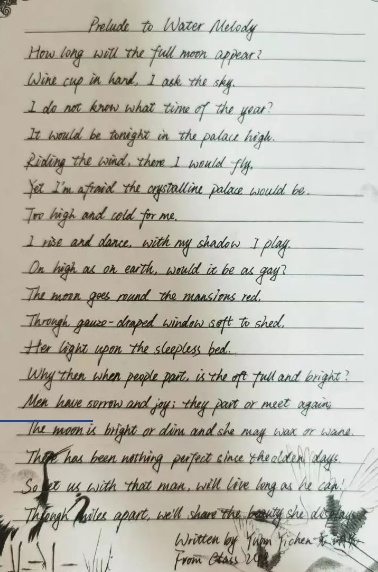 Prelude to Water Melody
How long will the full moon appear?
Wine cup in hand, I ask the sky.
I do not know what time of the year?
It would be tonight in the palace high.
Riding the wind, there I would fly,
Yet I'm afraid the crystalline palace would be.
Too high and cold for me.
I rise and dance, with my shadow I play.
On high as on earth, would it be as gay?
The moon goes round the mansions red,
Through gauze-draped window soft to shed,
Her light upon the sleepless bed.
Why then when people part, is the oft full and bright?
Men have sorrow and joy; they part or meet again;
The moon is bright or dim and she may wax or wane.
There has been nothing perfect since the olden days.
So let us with that man, will live long as he can!
Through miles apart, we'll share the beauty she displays
Written by Yuan Yichen
From Class